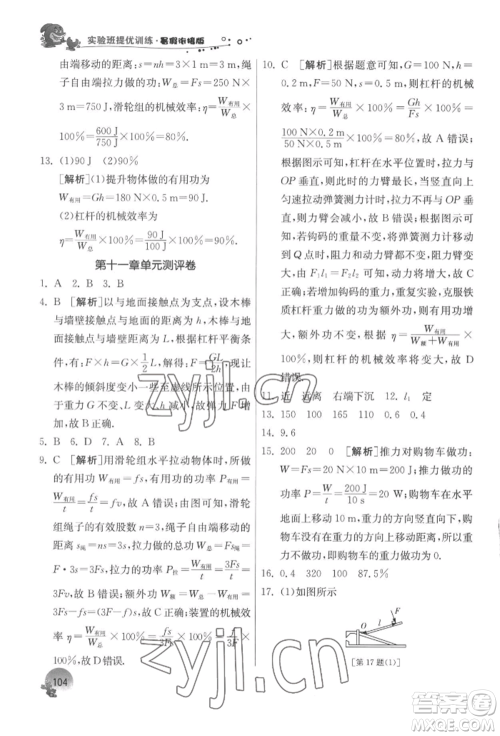 实验班提优训练·暑假衔接版
由端移动的距离:s=nh=3×1 m=3 m,绳
子自由端拉力做的功:W总=Fs=250 N×
3 m=750 J,滑轮组的机械效率:η=W有用/W总×
100%=600 J/750 J×100%=80%.
13. (1)90 J (2)90%
[解析](1)提升物体做的有用功为
W有用=Gh=180 N×0.5 m=90 J.
(2)杠杆的机械效率为
η=W有用/W总×100%=90 J/100 J×100%=90%.
第十一章单元测评卷
1. A 2. B 3. B
4. B [解析]以与地面接触点为支点,设木棒
与墙壁接触点与地面的距离为 h;根据杠
杆平衡条件
有:F×h=G×1/2 L,所以 F=GL/2h,因
木棒的倾斜程度
G 不变,h 变小,故 F 变大.
5. B 6. D 7. A 8. B
9. C [解析]用滑轮组水平拉动物体时,所做
的有用功率 P有用=W有用/t=fs/t=fv,故 A 错误;由图可知,滑轮组
绳子的有效股数 n=3,绳子自由端移动
的距离 s绳=3s,拉力做的总功 W总=
F·3s=3Fs,拉力的功率 P拉=W总/t=3Fs/t=
3Fv,故 B 错误;额外功 W额=W总-W有用=
3Fs-fs,故 C 正确;装置的机械效率
η=W有用/W总×100%=fs/3Fs×100%=f/3F×
100%,故 D 错误.
10. C [解析]根据题意可知,G=100 N,h=
0.2 m,F=50 N,s=0.5 m;则杠杆的机械
效率 η=W有用/W总×100%=Gh/Fs×100%=
100 N×0.2 m/50 N×0.5 m×100%=80%,故 A 错误;
根据图示可知,杠杆在水平位置时,拉力与
OP 垂直,此时拉力的力臂最长,当竖直向上
匀速拉动弹簧测力计时,拉力不再与
OP 垂直,拉力的力臂会变小,故 B 错误;
根据图示可知,若将弹簧测力计移动到
Q 点时,阻力和阻力臂不变,动力臂减小,
由 F1l1=F2l2 可知,动力将增大,故 C 正
确;若增加钩码的重力,重复实验,克服铁
质杠杆重力做的功不变,根据 η=W有用/W总×
100%=W有用/(W额+W有用)×
100%,则杠杆的机械效率将变大,故 D
错误.
11. 近 远离 右端下沉 12. l1 定
13. 150 100 165 110 0.6 0.4
14. 9.6
15. 200 20 0 [解析]推力对购物车做功:
W=Fs=20 N×10 m=200 J;推力的功
率:P=W/t=200 J/10 s=20 W;购物车在水平地
面上,重力的方向竖直向下,购物车移动的
方向为水平方向,在重力的方向上没有移
动距离,即购物车重力做功为 0.
16. 0.4 320 100 87.5%
17. (1)如图所示
F
l
O
[第 17 题(1)]
104
zyjl.cn
作业精灵
答案圈
MXQE.COM